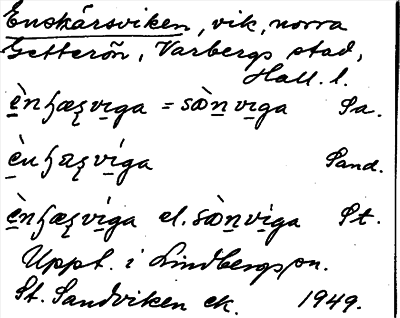 Enskärsviken, vik, norra
Getterön, Varbergs stad,
Hall. l.
ènꞕæʂvi̱ga = sɷ̀n̲vi̱ga Sa.
ènꞕæʂvi̱ga Sand.
ènꞕæʂvi̱ga el. sɷ̀n̲vi̱ga St.
Uppt. i Lindberg
St. Sandviken ek. 1949.